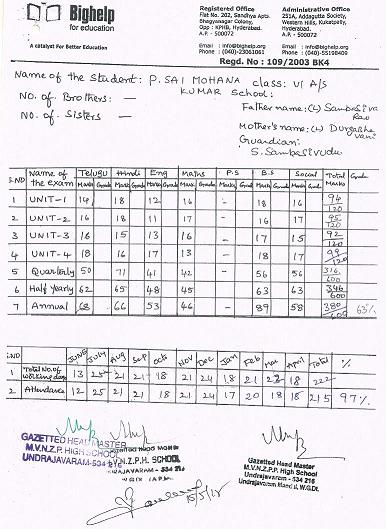 Bighelp
for education
A catalyst For Better Education
Registered Office
Flat No. 202, Sandhya Apts.
Bhagyanagar Colony,
Opp : KPHB, Hyderabad.
A.P. - 500072
Email : info@bighelp.org
Phone : (040)-23061061
Administrative Office
251A, Addagutta Society,
Western Hills, Kukatpally,
Hyderabad.
A.P. - 500072
Email : info@bighelp.org
Phone : (040)-55198409
Regd. No : 109/2003 BK4
Name of the Student: P. SAI MOHANA KUMAR class: VI A/S
NO. of Brothers: — School:
NO. of Sisters : —
Father name: (L) Sambasiva Rao
Mother's name: (L) Durgabhavani
Guardian:
S. Sambasivudu
S.NO Name of the exam Telugu Hindi Eng Maths P.S B.S Social Total Marks Grade
Mark Grade Mark Grade Mark Grade Mark Grade Mark Grade Mark Grade Mark Grade
1 UNIT-1 14 18 12 16 - 18 16 94/120
2 UNIT-2 16 18 11 17 - 16 17 95/120
3 UNIT-3 16 15 13 16 - 17 15 92/120
4 UNIT-4 18 16 17 13 - 18 17 99/120
5 Quarterly 50 71 41 42 - 56 56 316/600
6 Half Yearly 62 65 48 45 63 63 346/600
7 Annual 68 66 53 46 89 58 380 63%
S.NO JUNE July Aug Sep Oct Nov Dec Jan Feb Mar April Total %
1 Total No. of working days 13 25 21 21 18 21 24 18 21 22 18 222
2 Attendance 12 25 21 21 18 21 24 17 20 18 18 215 97%
GAZETTED HEAD MASTER
M.V.N.Z.P. HIGH SCHOOL
UNDRAJAVARAM-534 216
M.V.N.Z.P.H. SCHOOL
UNDRAJAVARAM-534 216
Gazetted Head Master
M.V.N.Z.P.H. School
Undrajavaram-534 216
Undrajavaram Mandal, W.G.Dt.